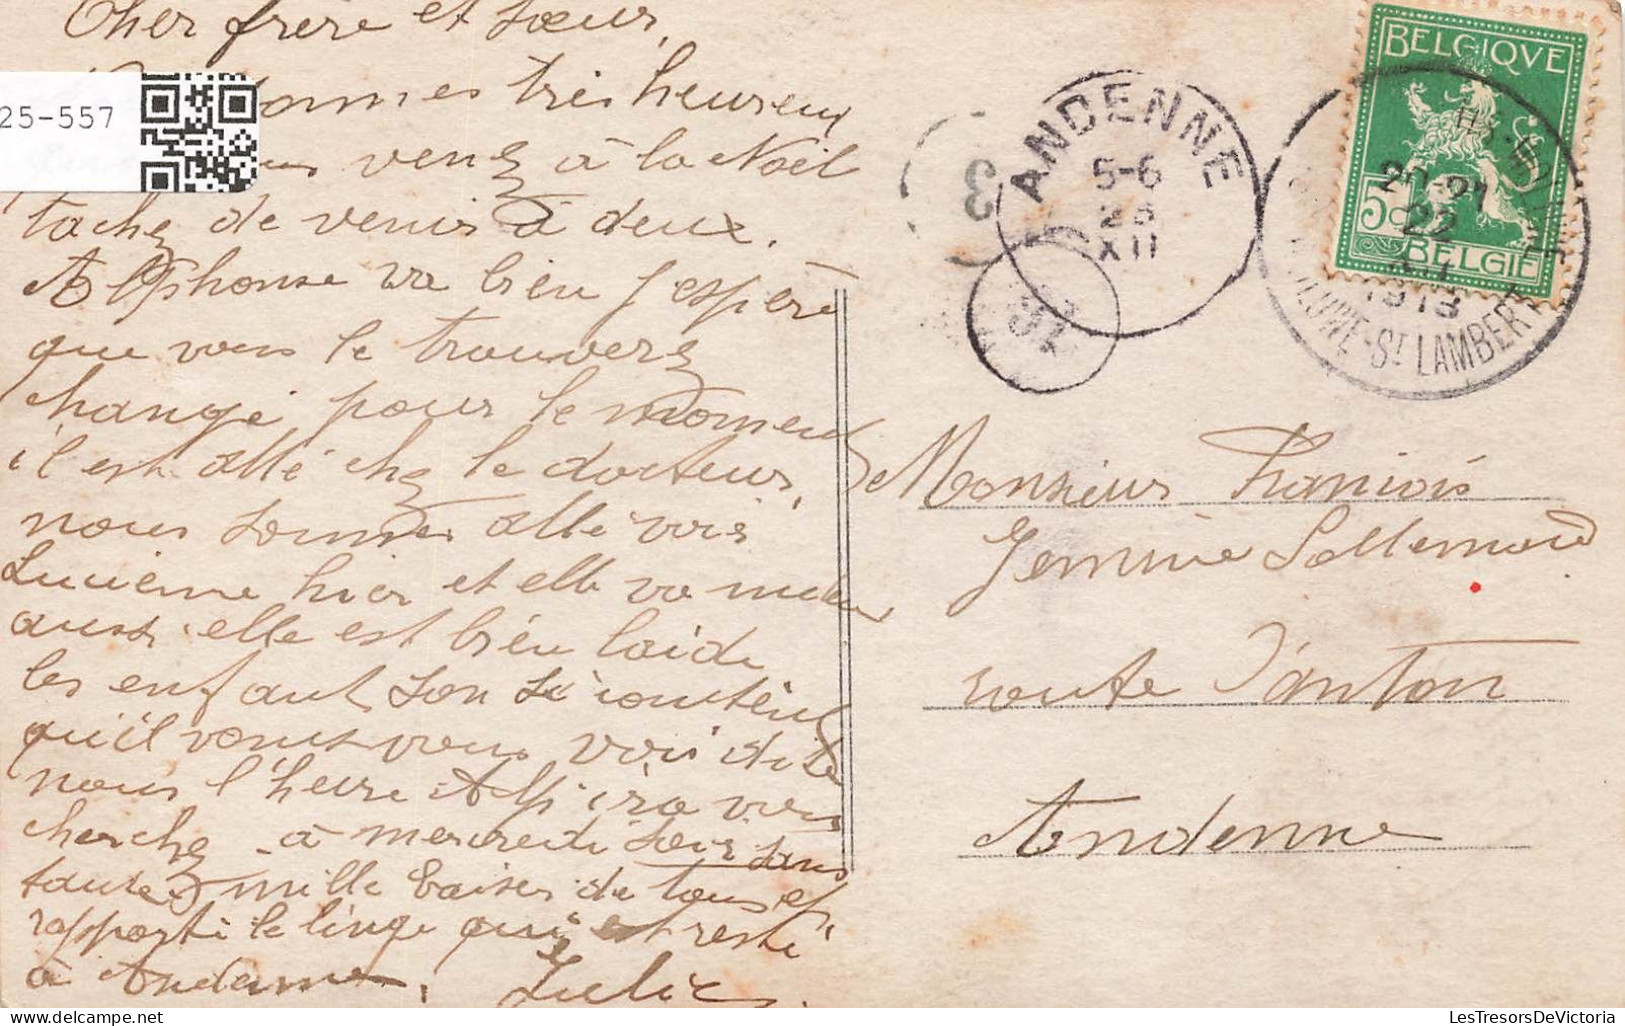 Cher frère et sœur,
sommes très heureux
25-557
vous venez à la Noël
tachez de venir à deux.
Alphonse va bien j'espère
que vous le trouverz
changé pour le moment
il est allé chez le docteur,
nous sommes allé voir
Lucienne hier et elle va mieux
aussi elle est bien laide
les enfant son si contént
qu'il vont vous voir dite
nous l'heure Alph ira vous
cherchez à mercredi soir sans
faute mille baiser de tous et
rapporté le linge qui est resté
à Andenne.
Julie
BELGIQVE
5c
BELGIE
ANDENNE
5-6
23
XII
3
20-21
22
XII
1913
ST LAMBERT
Monsieur Franiois
Jermine Sallemard
route d'anton
Andenne
delcampe.net
LesTresorsDeVictoria